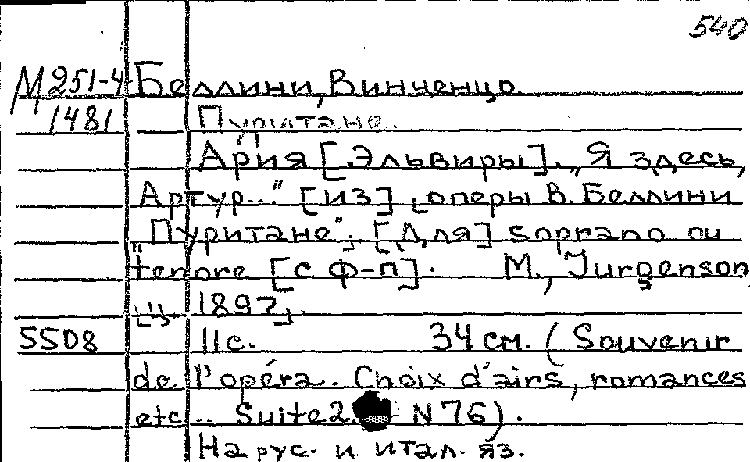 540
М251-4 Беллини, Винченцо
1481 Пуритане.
Ария [Эльвиры]. „Я здесь,
Артур..." [из] оперы В. Беллини
„Пуритане". [Для] soprano ou
tenore [с ф-п]. М., Jurgenson,
1897.
5508 11с. 34 см. (Souvenir
de l'opéra. Choix d'airs, romances
etc... Suite 2. N 76).
На рус. и итал. яз.